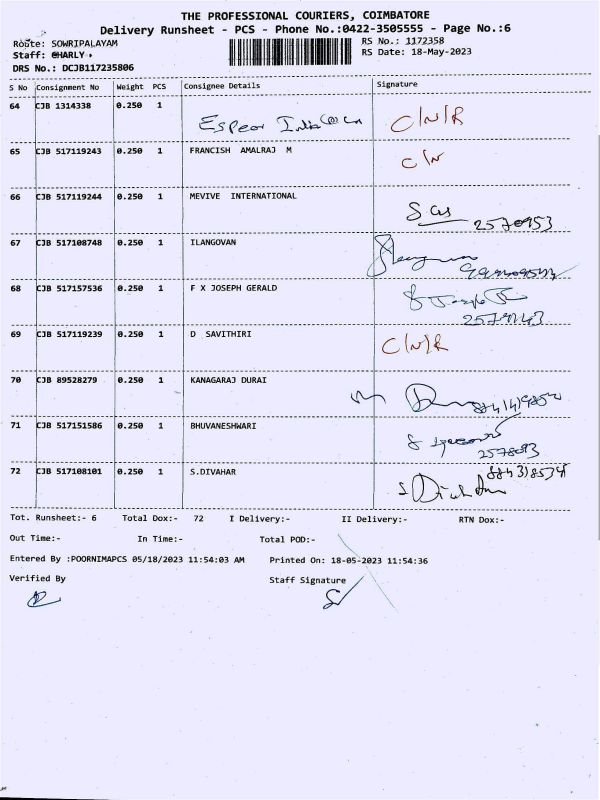 THE PROFESSIONAL COURIERS, COIMBATORE
Delivery Runsheet - PCS - Phone No.:0422-3505555 - Page No.:6
Route: SOWRIPALAYAM
RS No.: 1172358
Staff: CHARLY
RS Date: 18-May-2023
DRS No.: DCJB117235806
S No Consignment No Weight PCS Consignee Details Signature
64 CJB 1314338 0.250 1 C/N/R
65 CJB 517119243 0.250 1 FRANCISH AMALRAJ M C/N
66 MEVIVE INTERNATIONAL CJB 517119244 0.250 1
2570953
67 CJB 517108748 0.250 1 ILANGOVAN
68 CJB 517157536 0.250 1 F X JOSEPH GERALD
69 CJB 517119239 0.250 1 D SAVITHIRI C/N/R
70 CJB 89528279 0.250 1 KANAGARAJ DURAI
71 CJB 517151586 0.250 1 BHUVANESHWARI
72 CJB 517108101 0.250 1 S.DIVAHAR
Tot. Runsheet:- 6 Total Dox:- 72 I Delivery:- II Delivery:- RTN Dox:-
Out Time:- In Time:- Total POD:-
Entered By :POORNIMAPCS 05/18/2023 11:54:03 AM Printed On: 18-05-2023 11:54:36
Verified By Staff Signature